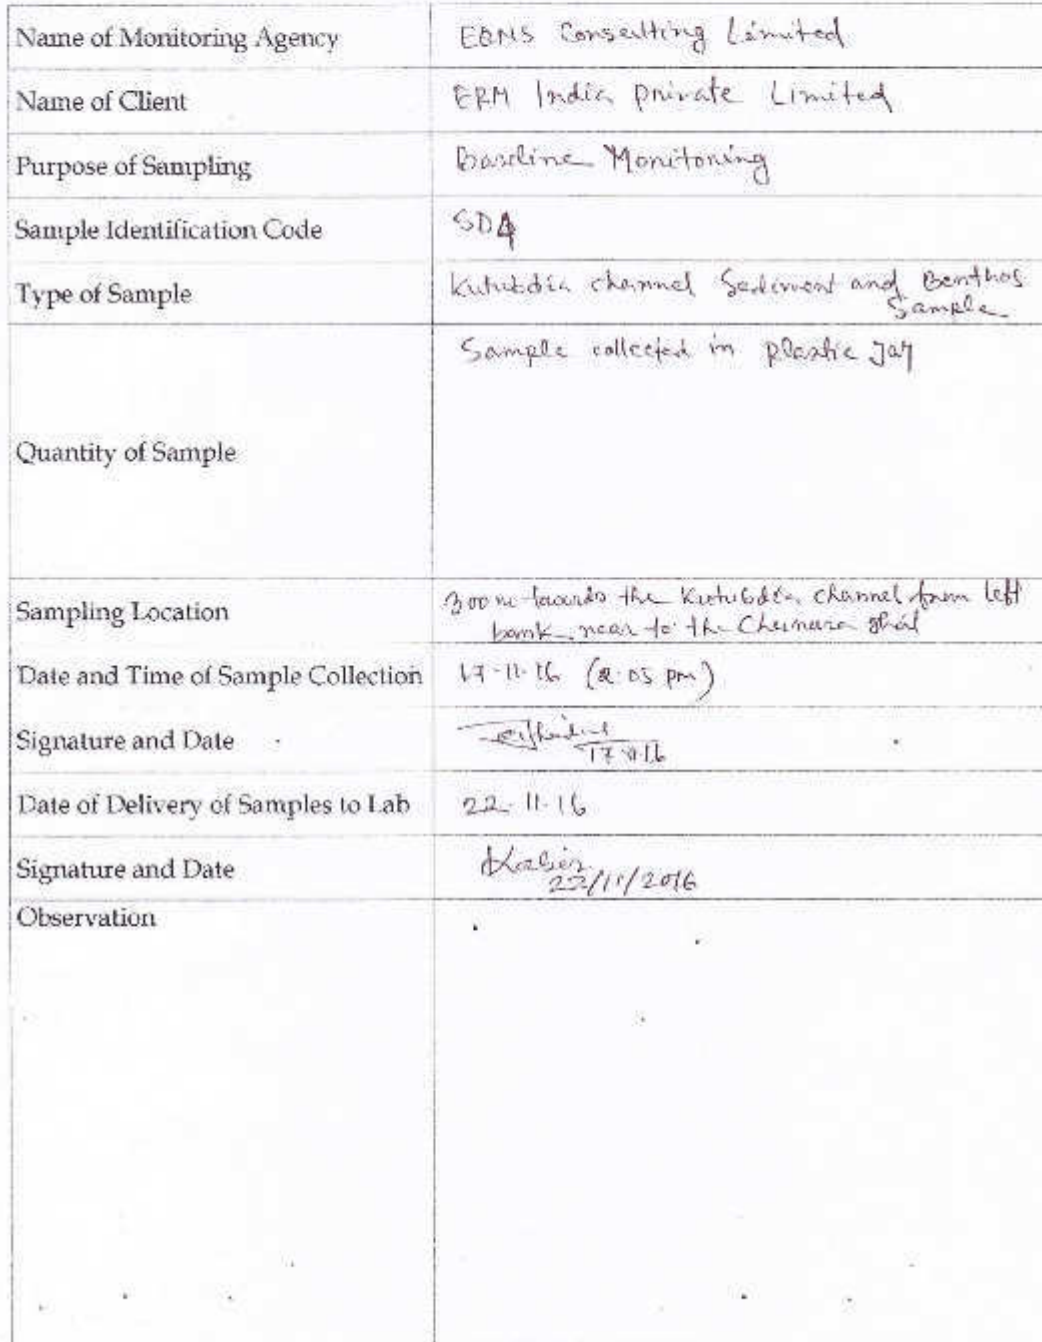 Name of Monitoring Agency EQMS Consulting Limited
Name of Client ERM India private Limited
Purpose of Sampling Baseline Monitoring
Sample Identification Code SD4
Type of Sample Kutubdia channel Sediment and Benthos
Sample
Sample collected in plastic Jar
Quantity of Sample
Sampling Location 300m towards the Kutubdia channel from left
bank near to the ghat
Date and Time of Sample Collection 17-11-16 (2:05 pm)
Signature and Date 17-11-16
Date of Delivery of Samples to Lab 22-11-16
Signature and Date Kabir
22/11/2016
Observation